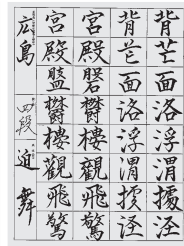 背芒面洛浮渭據涇
背芒面洛浮渭據涇
宮殿磐鬱樓觀飛驚
宮殿盤鬱樓觀飛驚
広島 四段 近 舞